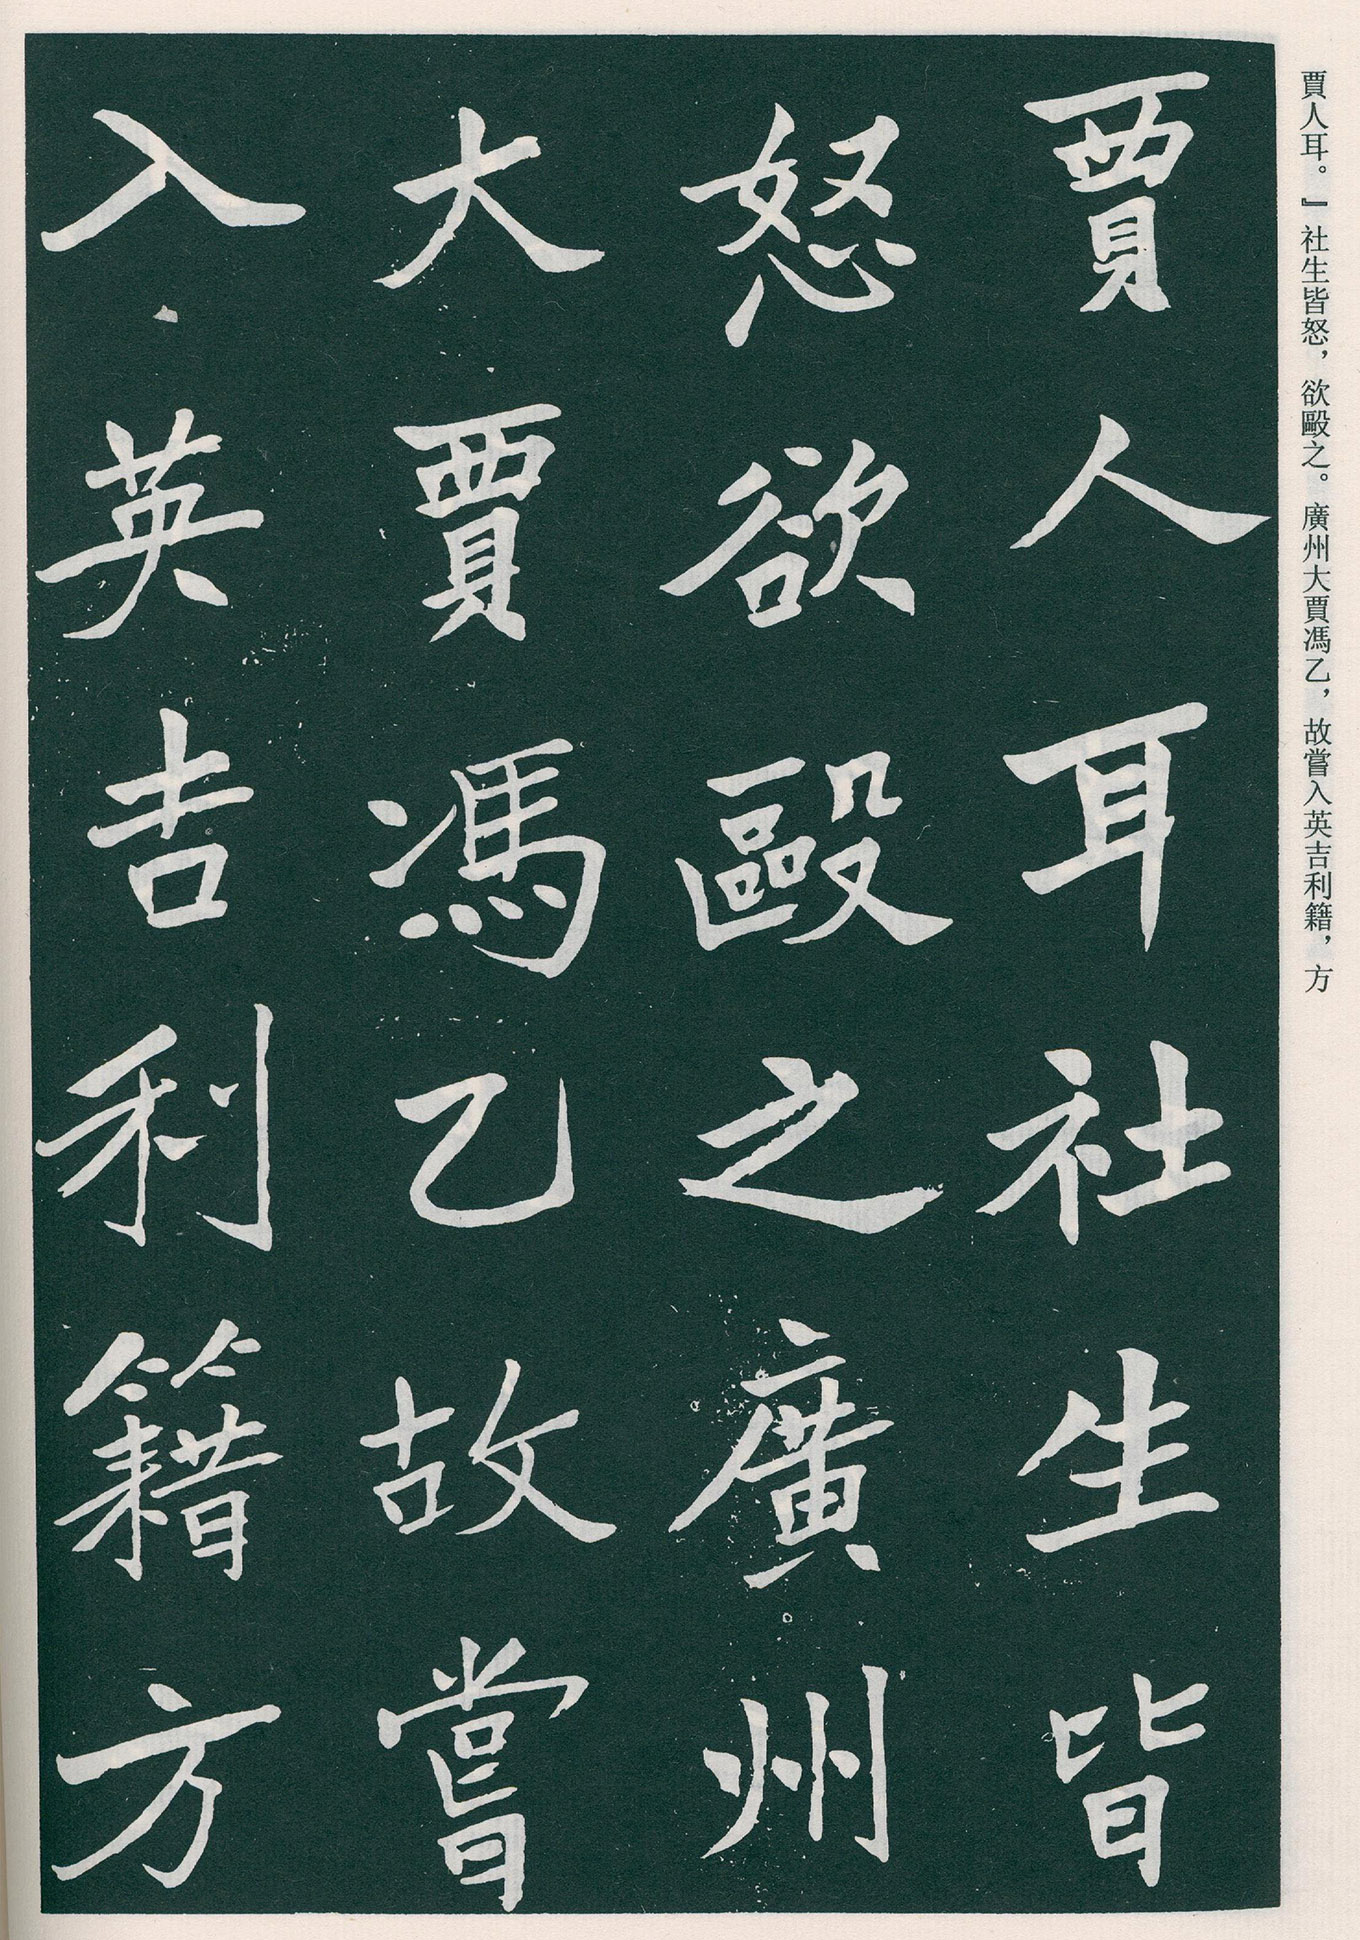 賈人耳。』社生皆怒，欲毆之。廣州大賈馮乙，故嘗入英吉利籍，方
賈人耳社生皆
怒欲毆之廣州
大賈馮乙故嘗
入英吉利籍方